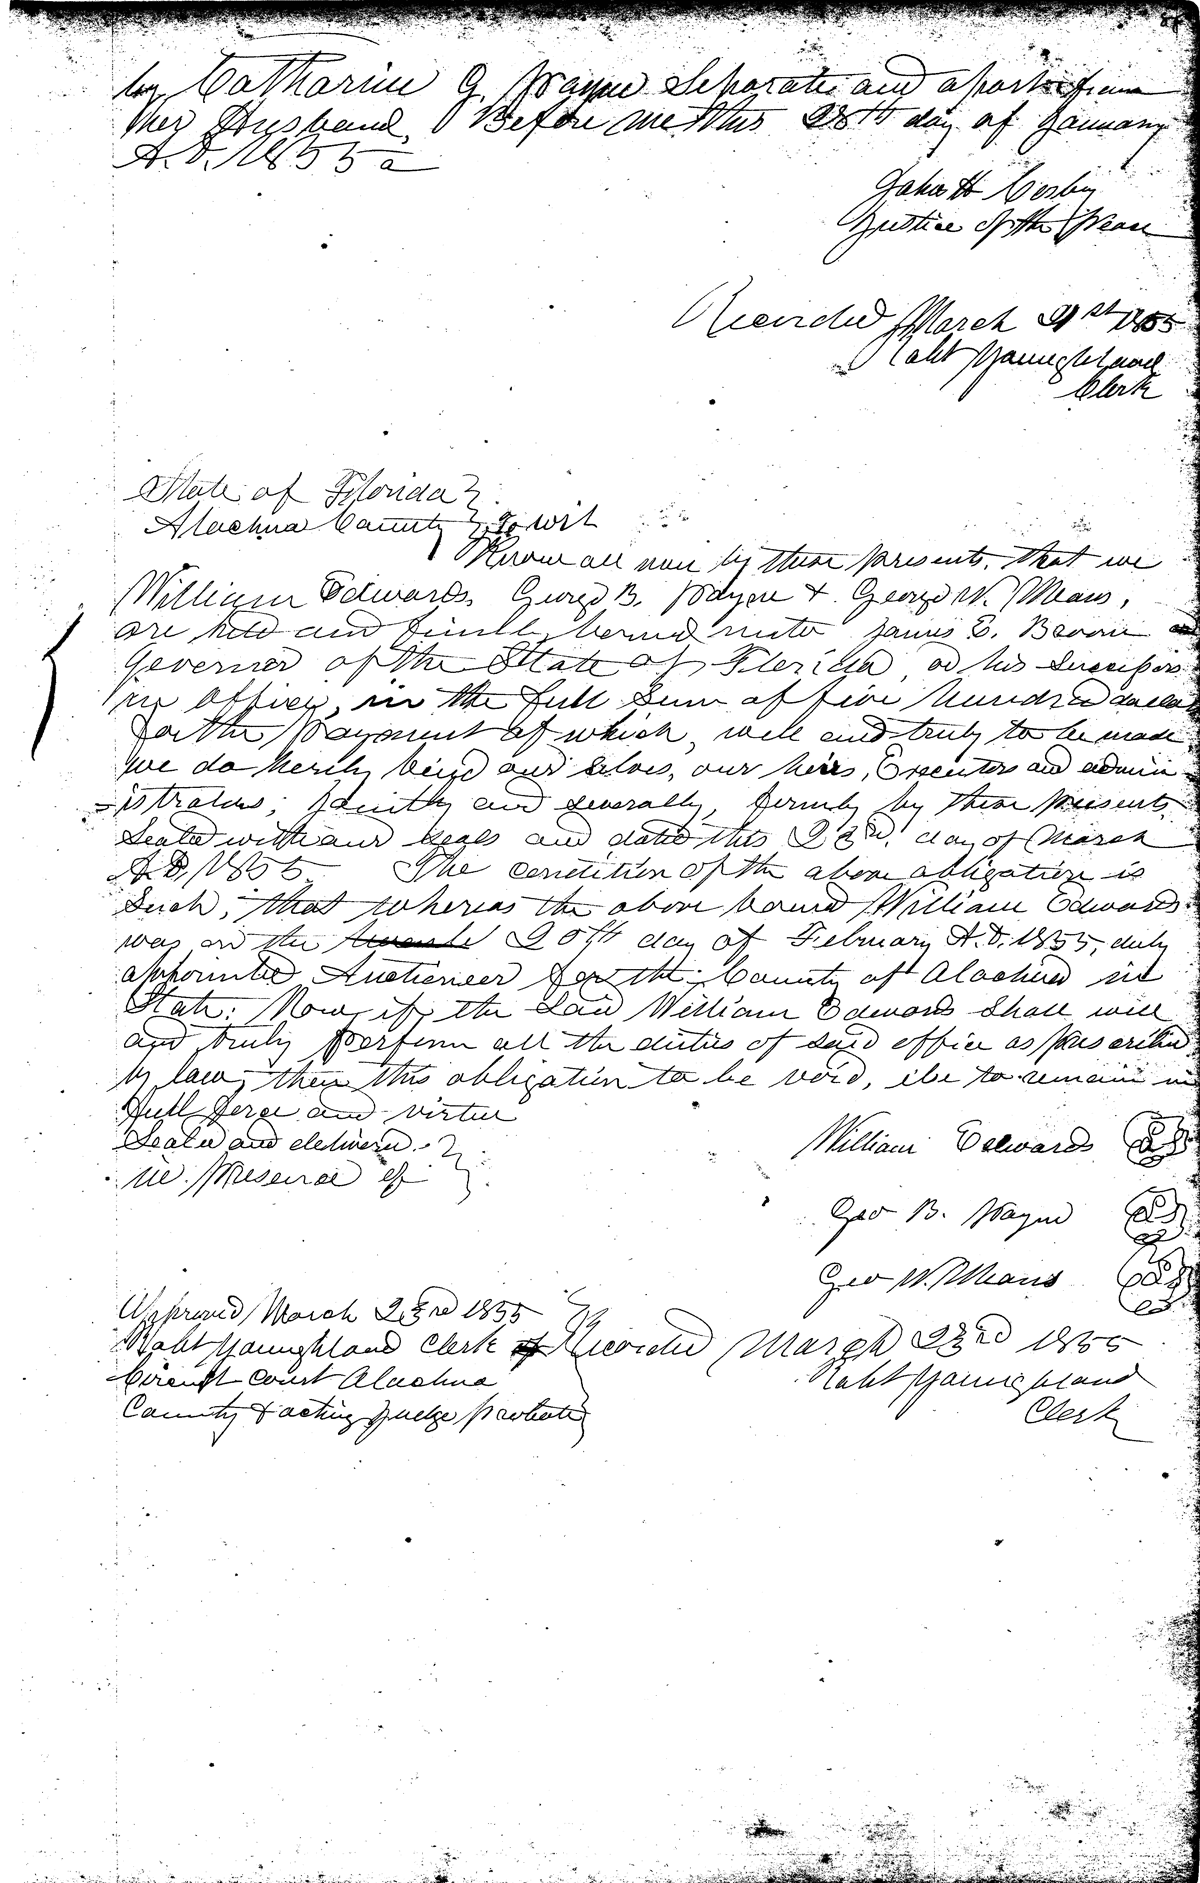 by Catharine G. Payne Separate and apart from
Her Husband, Before me this 28th day of January
A.D. 1855
John H Cosby
Justice of the Peace
Recorded March 21st 1855
Robt Youngblood
Clerk
State of Florida
Alachua County to wit
Know all men by these presents, that we
William Edwards, George B. Payne & George W. Means,
are held and firmly bound unto James E. Broom
Governor of the State of Florida or his Successors
in Office, in the full Sum of five hundred dollars
for the Payment of which, well and truly to be made
we do hereby bind our selves, our heirs, Executors and admin
-istrators; jointly and severally, firmly by these presents,
Seald with our seals and dated this 23rd day of March
A.D. 1855. The condition of the above obligation is
Such, that whereas the above bound William Edwards
was on the 20th day of February A.D. 1855, duly
appointed Auctioneer for the County of Alachua in
State: Now if the Said William Edwards Shall well
and truly perform all the duties of said office as prescribed
by law, then this obligation to be void, else to remain in
full force and virtue
Seald and deliverd
in presence of
William Edwards
Geo B. Payne
Geo W. Means
Approved March 23rd 1855
Robt Youngblood Clerk of
Circuit Court Alachua
County & acting Judge Probate
Recorded March 23rd 1855
Robt Youngblood
Clerk